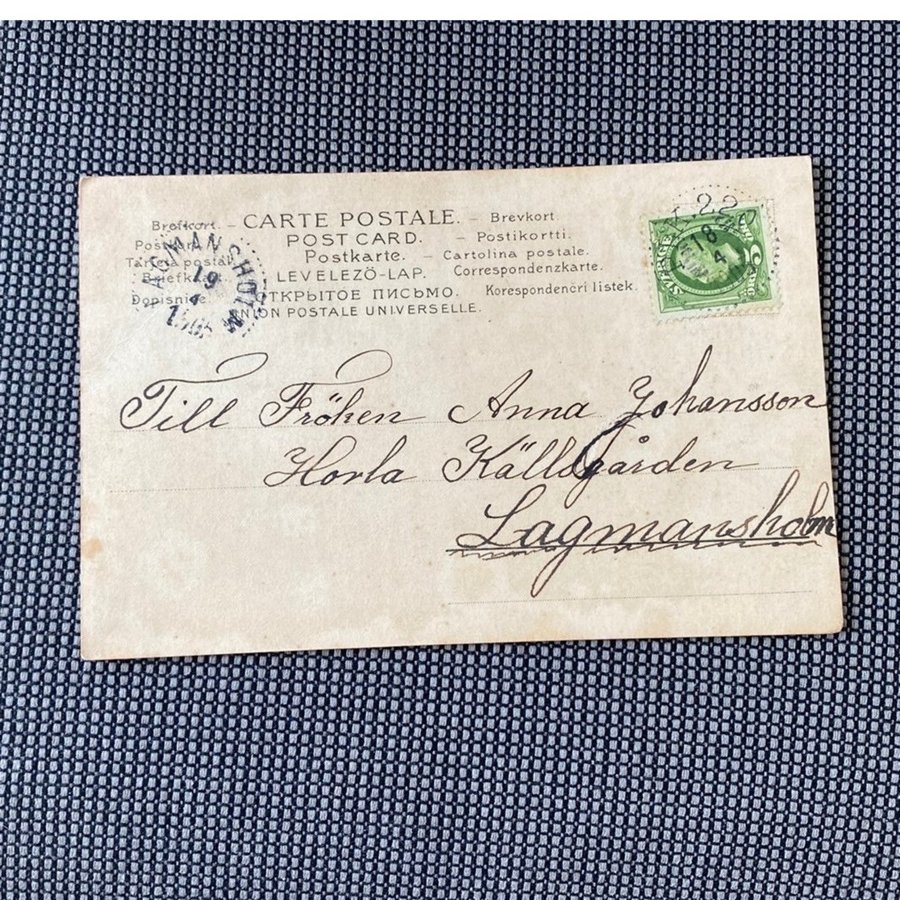 Brefkort. – CARTE POSTALE. – Brevkort.
POST CARD. – Postikortti.
Tarjeta postal. Postkarte. – Cartolina postale.
Briefkaart. LEVELEZÖ-LAP. Correspondenzkarte.
Dopisnice. ОТКРЫТОЕ ПИСЬМО. Korespondenčri listek.
UNION POSTALE UNIVERSELLE.
LAGMANSHOLM
19
4
22
18
4
SVERIGE
Till Fröken Anna Johansson
Horla Källsgården
Lagmansholm